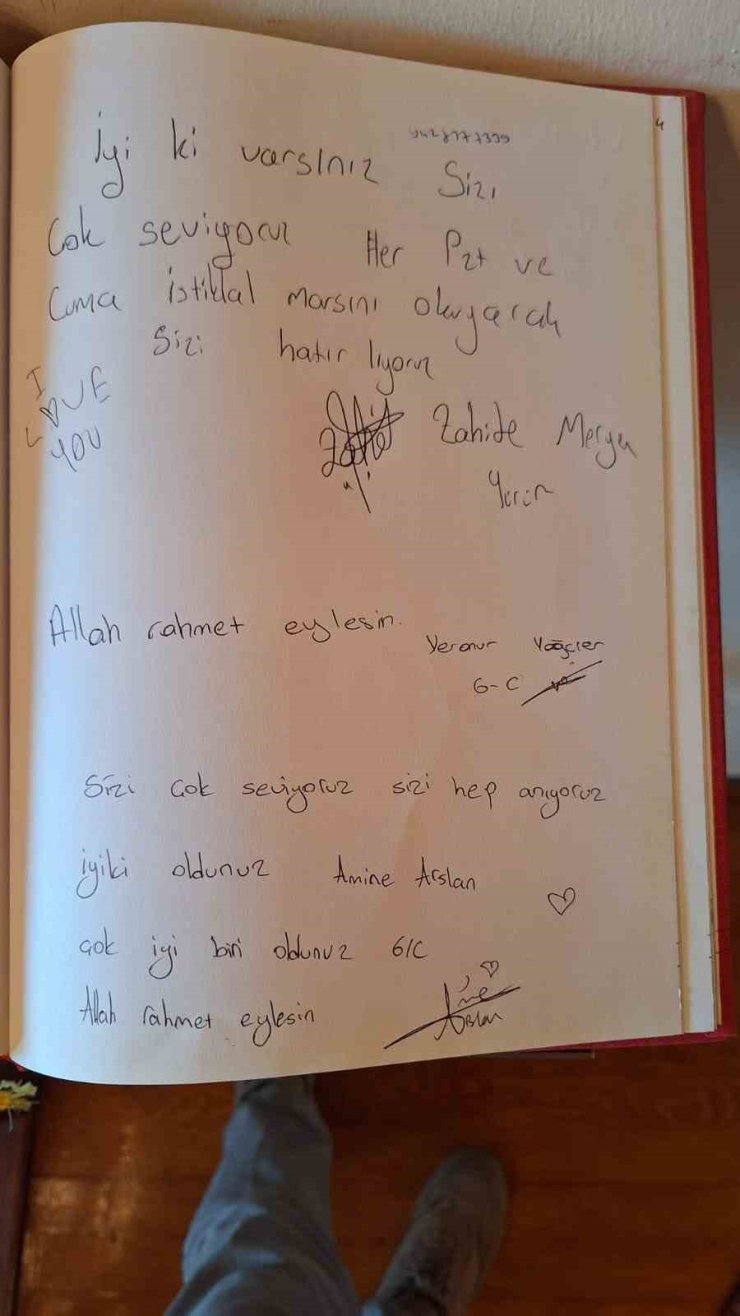 4
İyi ki varsınız Sizi
Çok seviyoruz Her Pzt ve
Cuma istiklal marşını okuyarak
Sizi hatırlıyoruz
I
LOVE
YOU
Zahide Merya
Allah rahmet eylesin.
6-C
Sizi çok seviyoruz sizi hep anıyoruz
iyiki oldunuz Amine Arslan
çok iyi biri oldunuz 6/C
Allah rahmet eylesin
Arslan